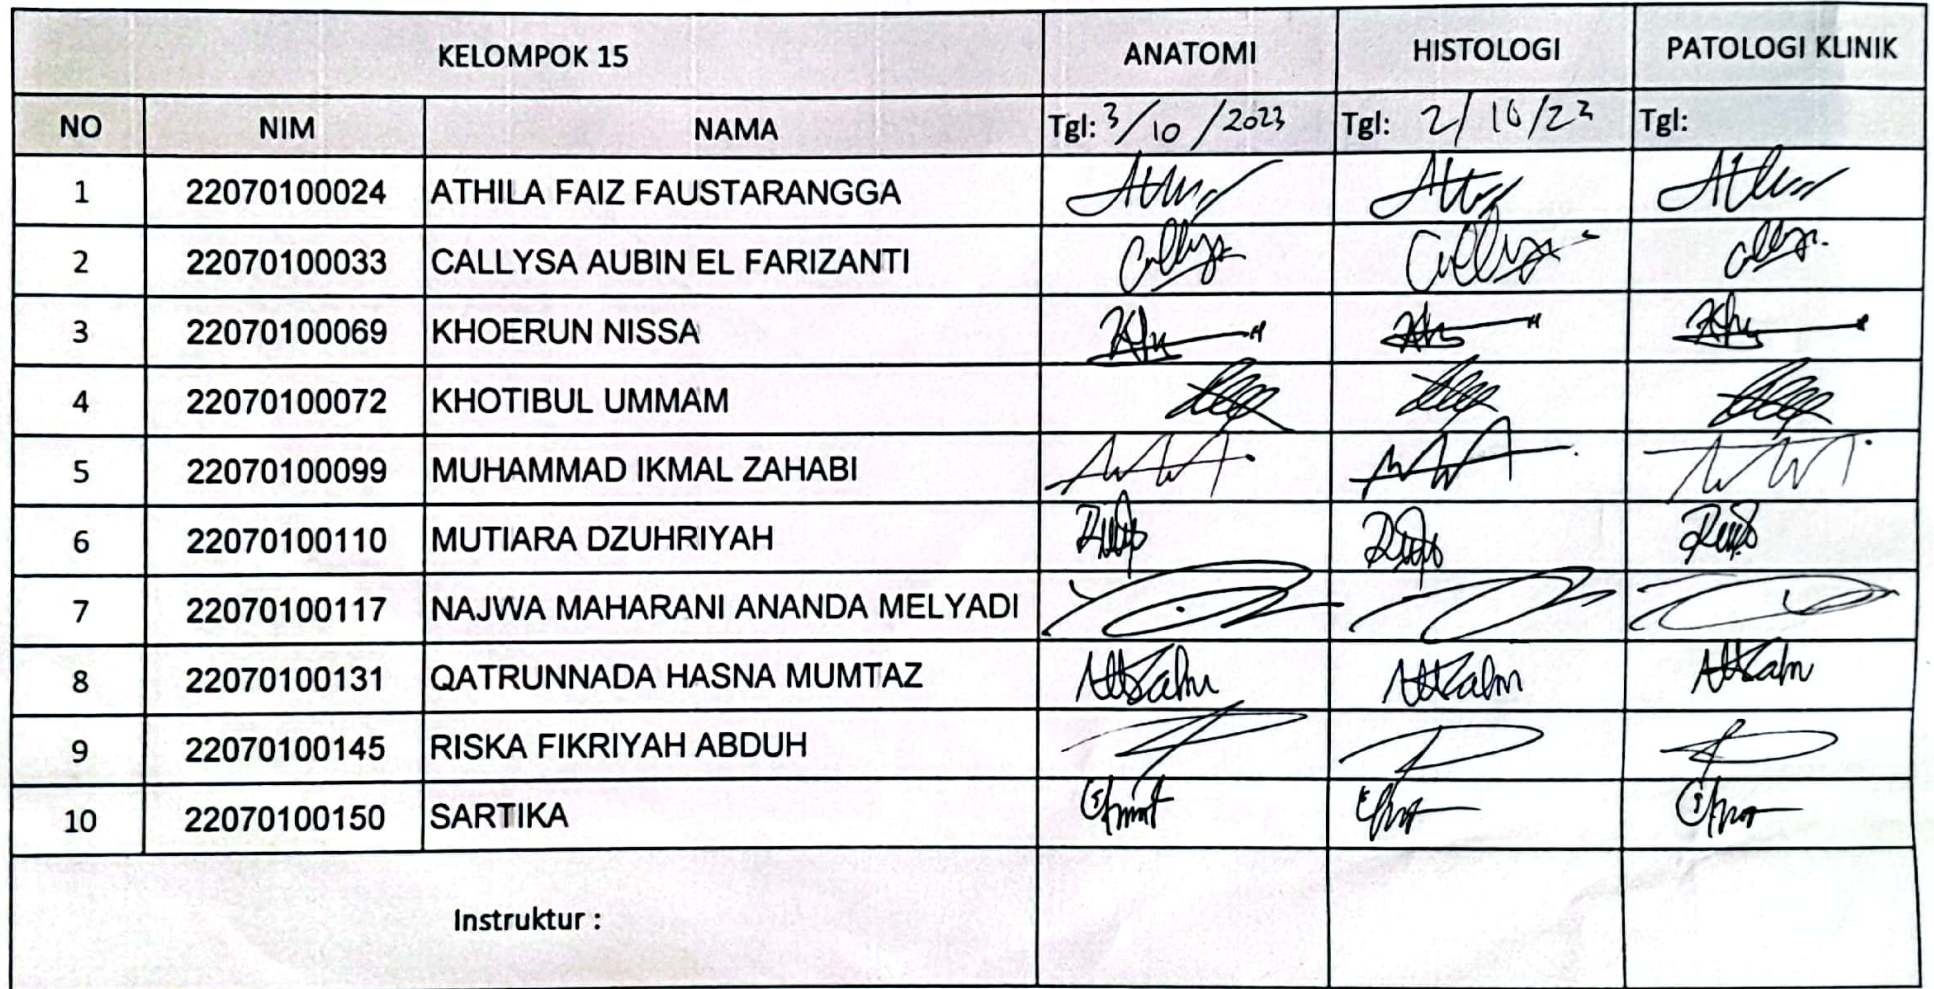 KELOMPOK 15 ANATOMI HISTOLOGI PATOLOGI KLINIK
NO NIM NAMA Tgl: 3/10/2023 Tgl: 2/10/23 Tgl:
1 22070100024 ATHILA FAIZ FAUSTARANGGA
2 22070100033 CALLYSA AUBIN EL FARIZANTI
3 22070100069 KHOERUN NISSA
4 22070100072 KHOTIBUL UMMAM
5 22070100099 MUHAMMAD IKMAL ZAHABI
6 22070100110 MUTIARA DZUHRIYAH
7 22070100117 NAJWA MAHARANI ANANDA MELYADI
8 22070100131 QATRUNNADA HASNA MUMTAZ
9 22070100145 RISKA FIKRIYAH ABDUH
10 22070100150 SARTIKA
Instruktur :